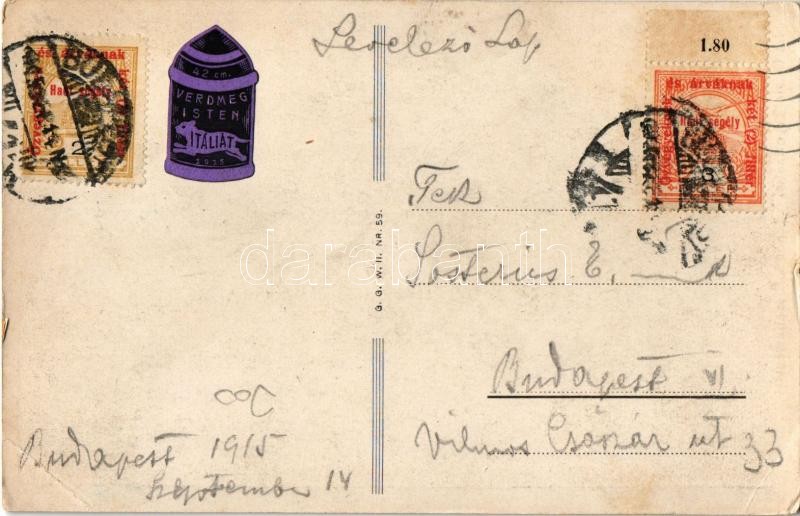 Levelező Lap
1.80
Hadi segély
42 cm.
VERDMEG
ISTEN
ITÁLIÁT
1915
Hadi segély
Tek
Sosterius E.
Budapest VI.
Vilmos Császár út 33
G. G. W. II. NR. 59.
200
Budapest 1915
September 14
darabanth